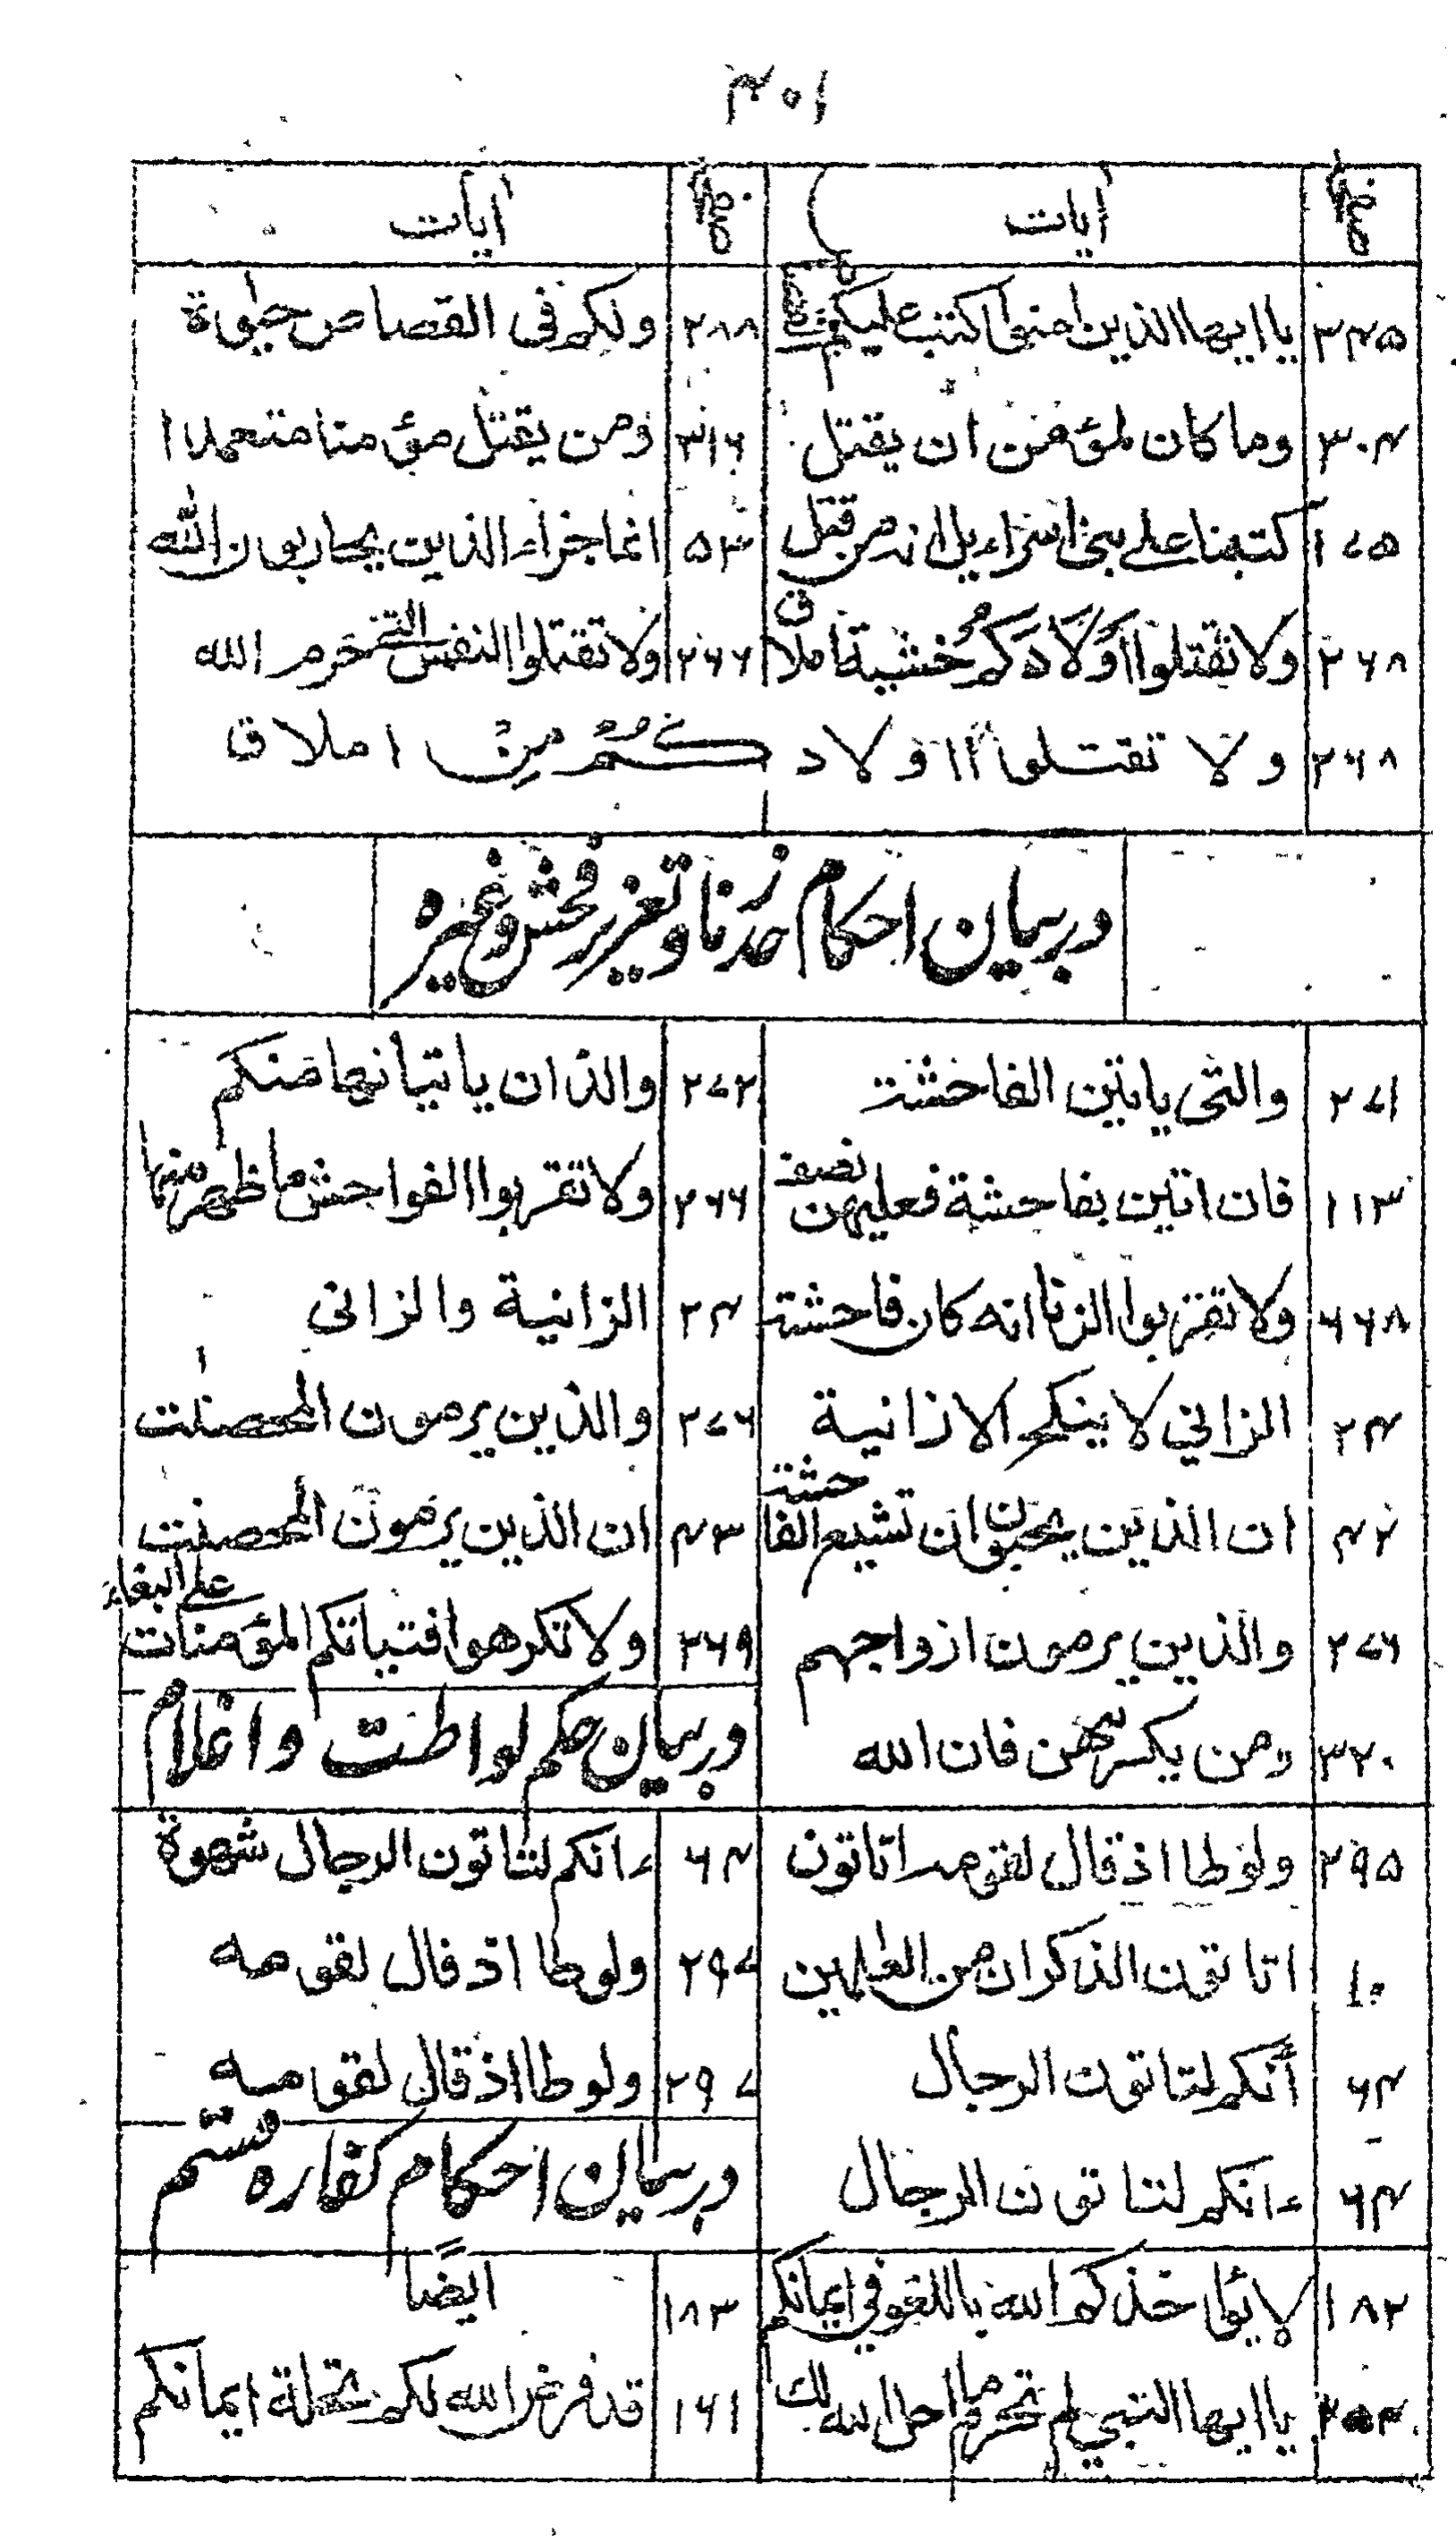 ۴۰۱
صفحه آيات صفحه آيات
۳۴۵ يا ايها الذين امنوا كتب عليكم ۲۸۸ ولكم فى القصاص حيوة
۳۰۴ وما كان لمؤمن ان يقتل ۳۱۶ ومن يقتل مؤمنا متعمدا
۱۷۵ كتبنا على بنى اسراءيل انه من قتل ۵۳ انما جزاء الذين يحاربون الله
۲۶۸ ولا تقتلوا اولادكم خشية املاق ۲۶۶ ولا تقتلوا النفس التى حرم الله
۲۶۸ ولا تقتلوا اولادكم من املاق
دربيان احكام حد زنا و تعزير فحش وغيره
۲۷۱ والتى ياتين الفاحشة ۲۷۲ والذان ياتيانها منكم
۱۱۳ فان اتين بفاحشة فعليهن نصف ۲۶۶ ولا تقربوا الفواحش ما ظهر منها
۲۶۸ ولا تقربوا الزنا انه كان فاحشة ۲۴ الزانية والزانى
۲۴ الزاني لا ينكح الا زانية ۲۷۶ والذين يرمون المحصنت
۴۲ ان الذين يحبون ان تشيع الفاحشة ۴۳ ان الذين يرمون المحصنت
۲۷۶ والذين يرمون ازواجهم ۲۶۹ ولا تكرهوا فتياتكم المؤمنات على البغاء
۳۲۰ ومن يكرههن فان الله
دربيان حكم لواطت واغلام
۲۹۵ ولوطا اذ قال لقومه اتاتون ۶۴ ءانكم لتاتون الرجال شهوة
۱۰ اتاتون الذكران من العلمين ۲۹۷ ولوطا اذ قال لقومه
۶۴ أنكم لتاتون الرجال ۲۹۷ ولوطا اذ قال لقومه
۶۴ ءانكم لتاتون الرجال
دربيان احكام كفاره قسم
۱۸۲ لا يؤاخذكم الله باللغو في ايمانكم ۱۸۳ ايضًا
يا ايها النبي لم تحرم ما احل الله لك ۱۶۱ قد فرض الله لكم تحلة ايمانكم